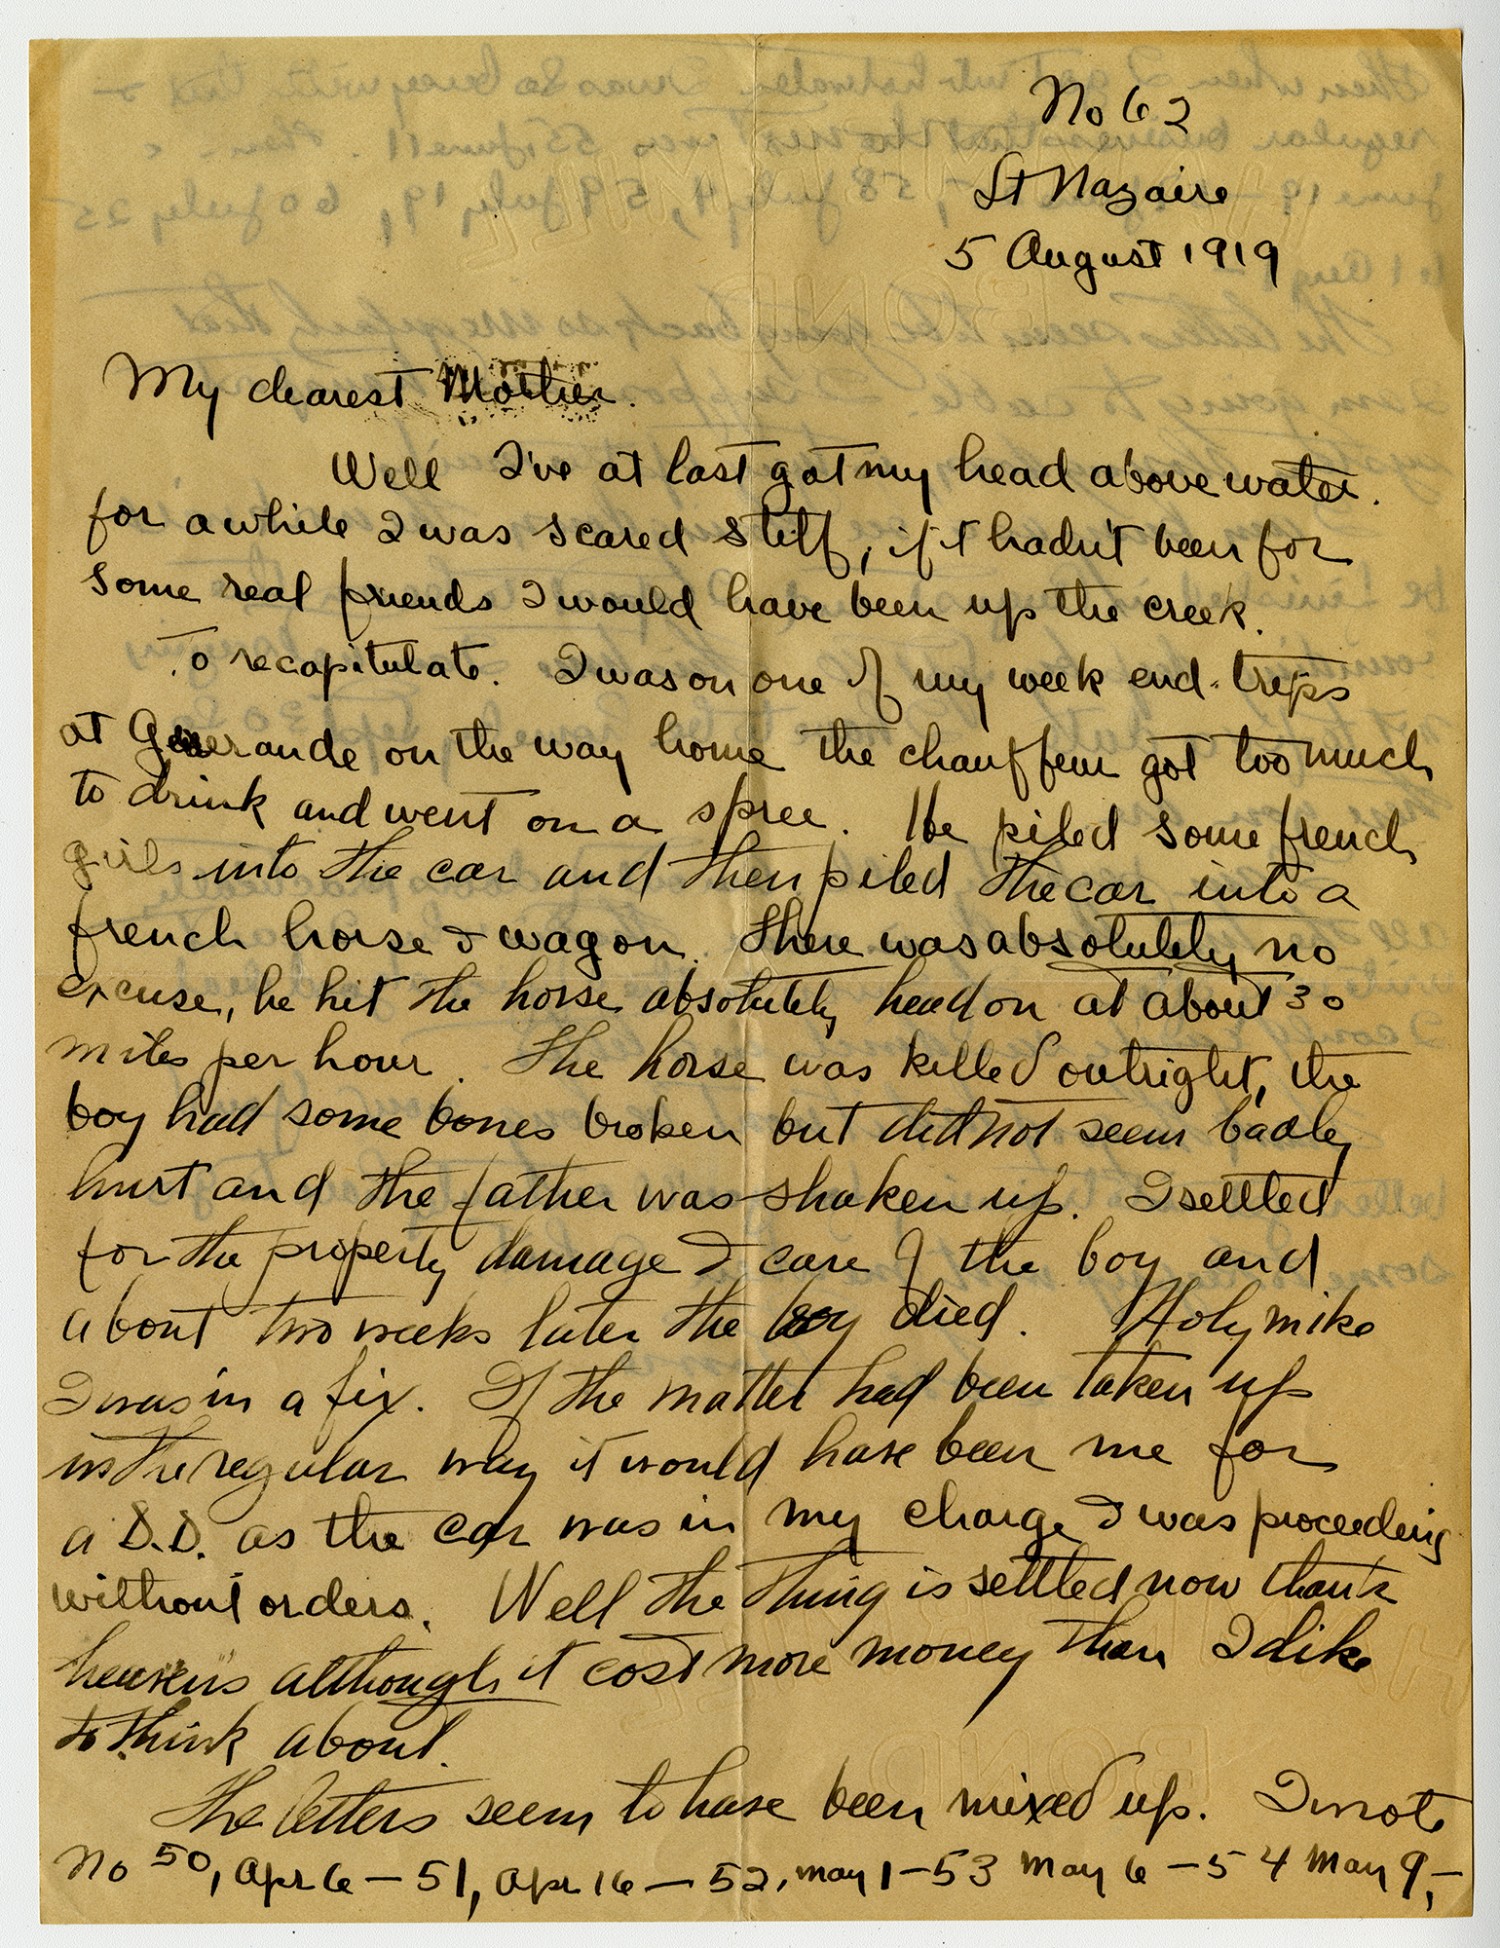 No 62
St Nazaire
5 August 1919
My dearest Mother.
Well I've at last got my head above water.
for awhile I was scared stiff, if it hadn't been for
some real friends I would have been up the creek.
To recapitulate. I was on one of my week end trips
at Guerande on the way home the chauffeur got too much
to drink and went on a spree. He piled some french
girls into the car and then piled the car into a
french horse & wagon. There was absolutely no
excuse, he hit the horse absolutely head on at about 30
miles per hour. The horse was killed outright, the
boy had some bones broken but did not seem badly
hurt and the father was shaken up. I settled
for the property damage & care of the boy and
about two weeks later the boy died. Holy mike
I was in a fix. If the matter had been taken up
in the regular way it would have been me for
a D.D. as the car was in my charge & I was proceeding
without orders. Well the thing is settled now thank
heavens although it cost more money than I'd like
to think about.
The letters seem to have been mixed up. I wrote
No 50, Apr 6 — 51, Apr 16 — 52, May 1 — 53 May 6 — 54 May 9, —